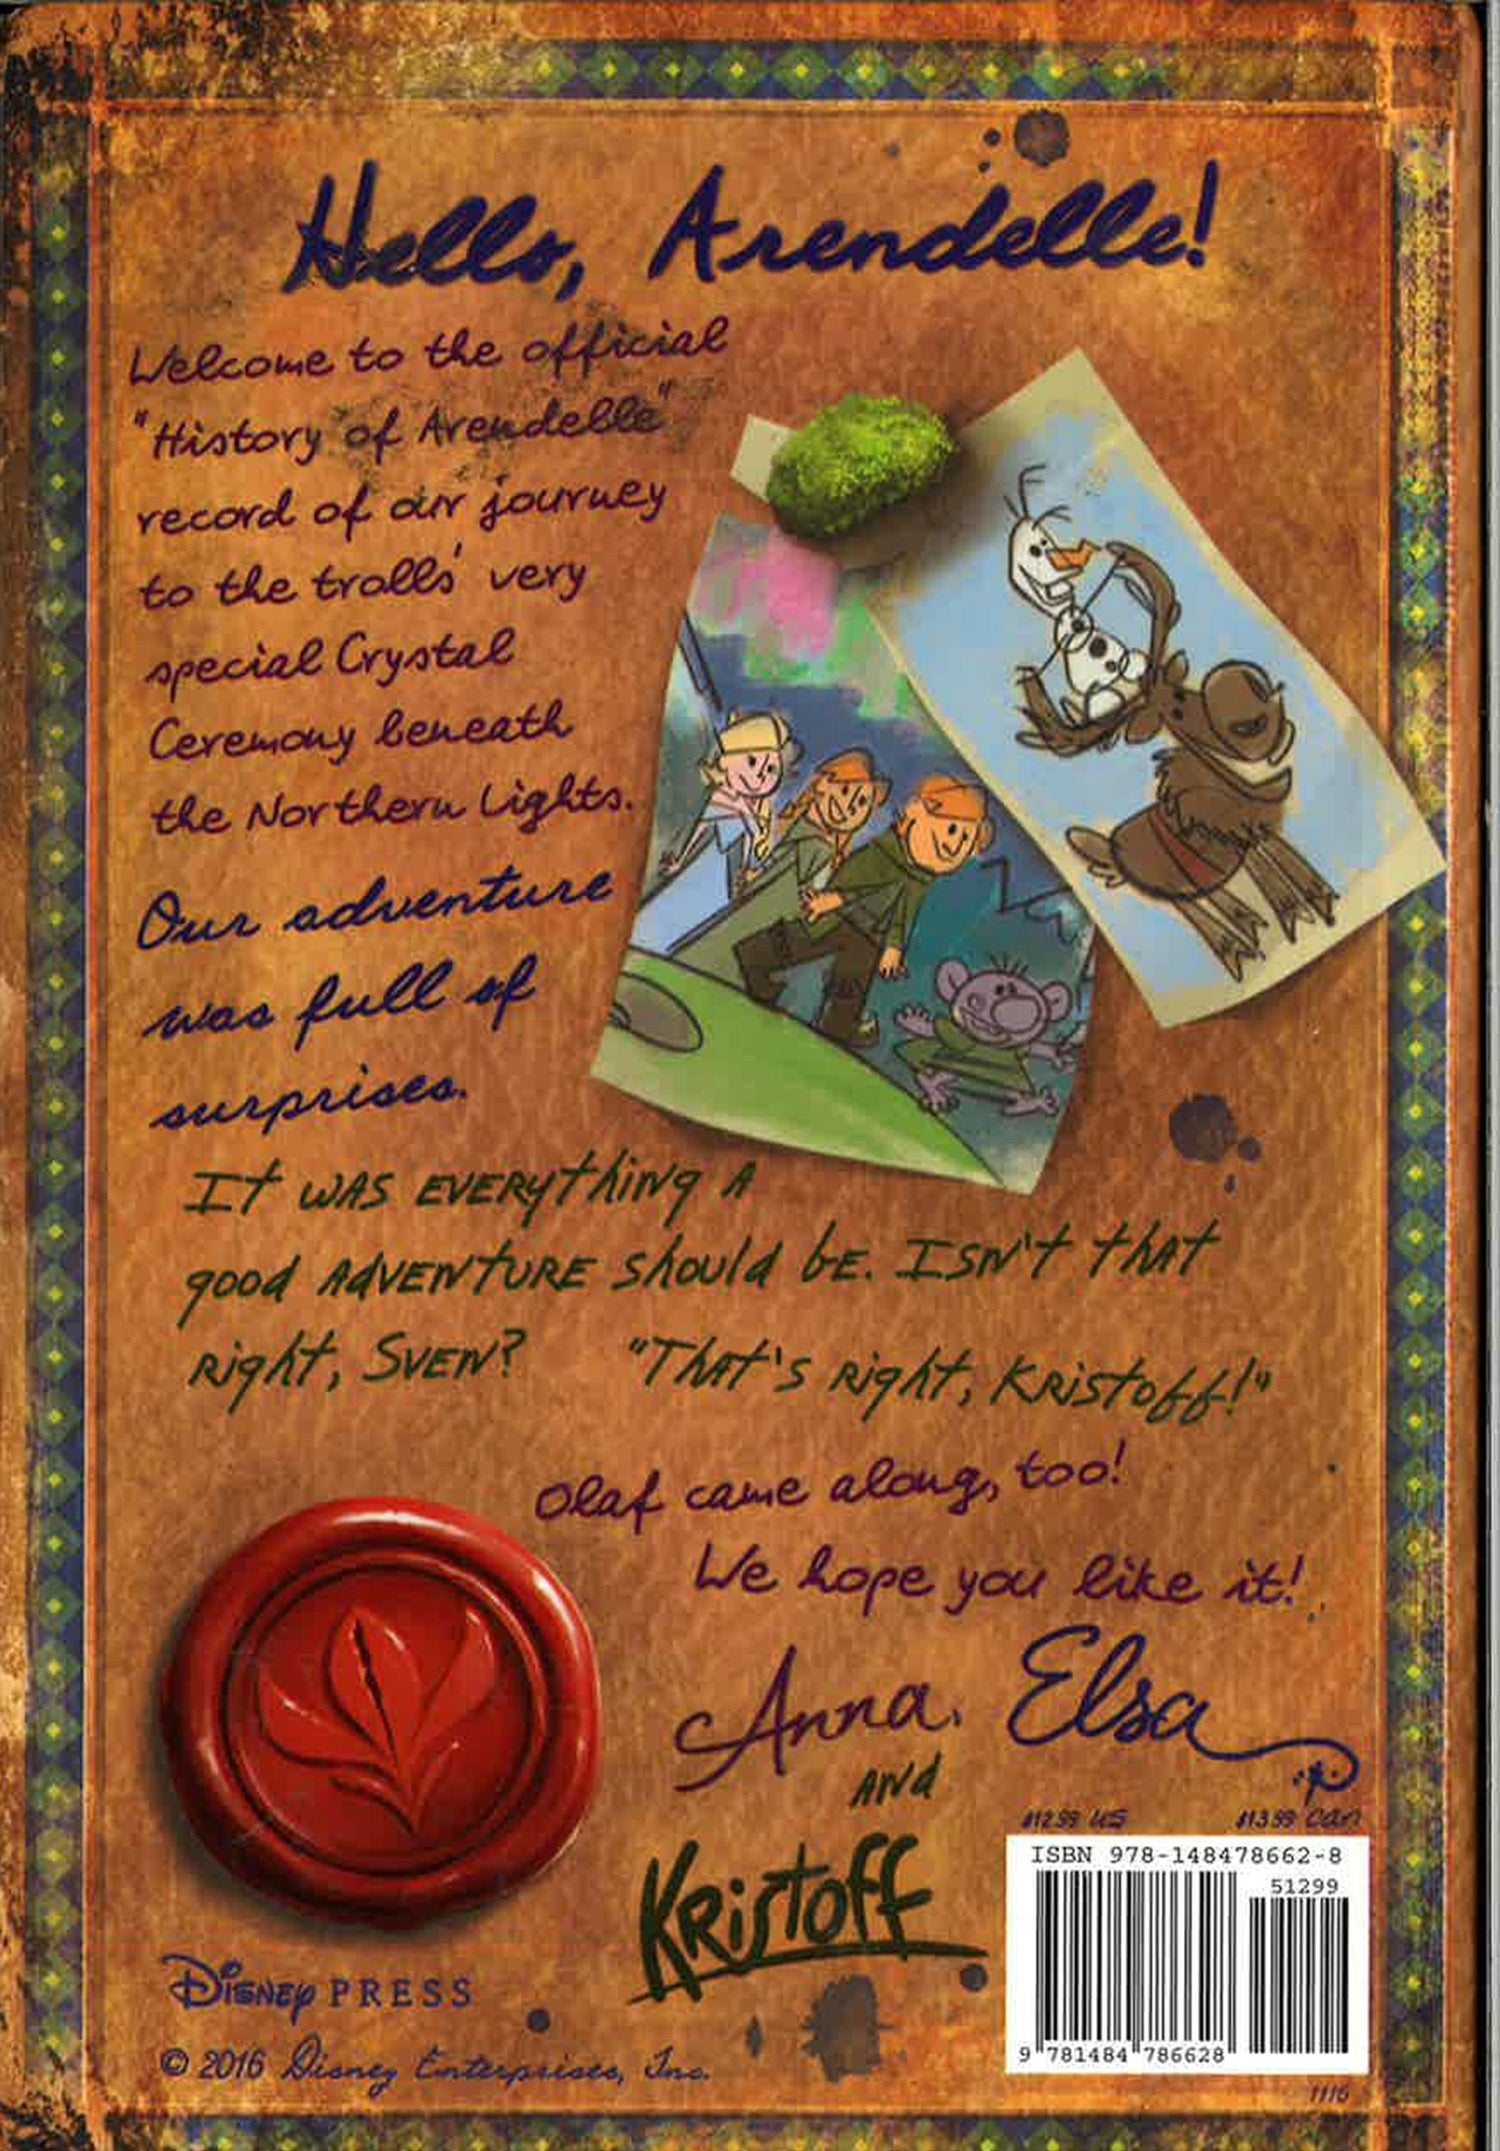 Hello, Arendelle!
Welcome to the official
"History of Arendelle"
record of our journey
to the trolls' very
special Crystal
Ceremony beneath
the Northern Lights.
Our adventure
was full of
surprises.
It was everything a
good adventure should be. Isn't that
right, Sven? "That's right, Kristoff!"
Olaf came along, too!
We hope you like it!
Anna, Elsa
and
Kristoff
$12.99 US $13.99 Can
ISBN 978-148478662-8
51299
9 781484 786628
1116
Disney PRESS
© 2016 Disney Enterprises, Inc.